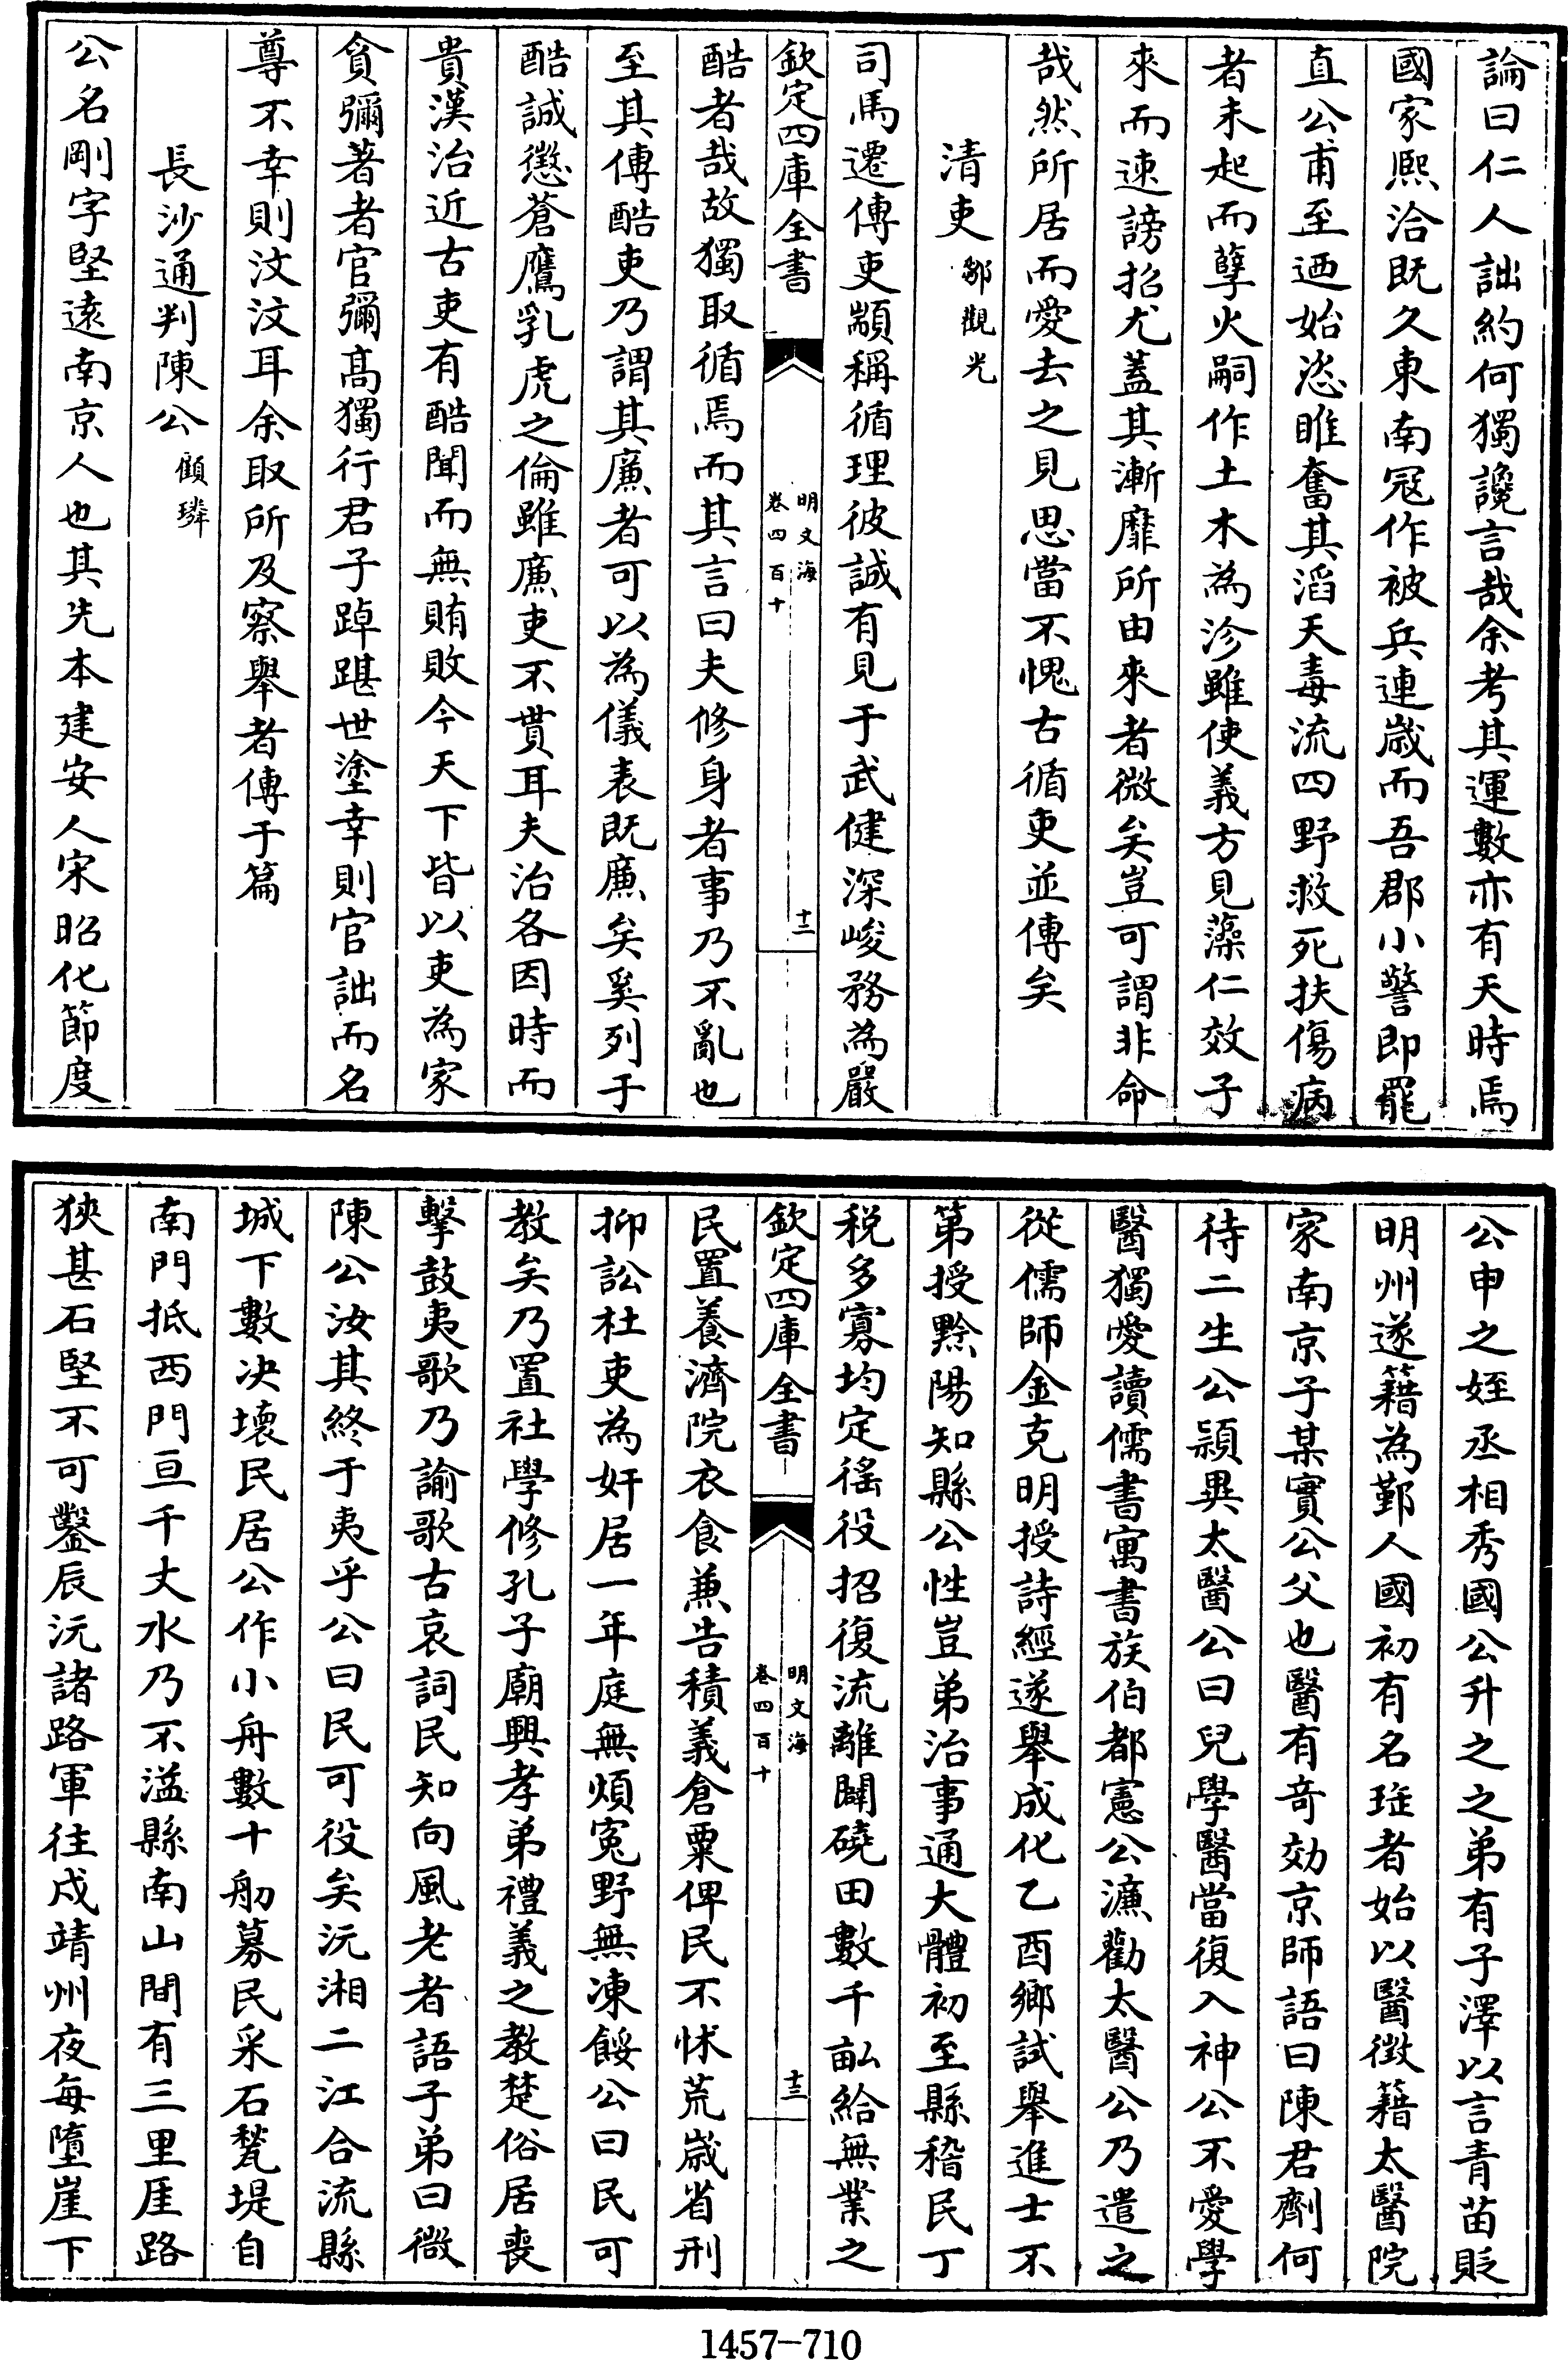 論曰仁人詘約何獨讒言哉余考其運數亦有天時焉
國家熙洽既久東南冦作被兵連嵗而吾郡小警即罷
直公甫至迺始恣睢奮其滔天毒流四野救死扶傷病
者未起而孽火嗣作土木為沴雖使義方見藻仁效子
來而速謗招尤蓋其漸靡所由來者微矣豈可謂非命
哉然所居而愛去之見思當不愧古循吏並傳矣
清吏 鄒觀光
司馬遷傳吏顓稱循理彼誠有見于武健深峻務為嚴
欽定四庫全書
明文海
卷四百十
十二
酷者哉故獨取循焉而其言曰夫修身者事乃不亂也
至其傳酷吏乃謂其廉者可以為儀表既廉矣奚列于
酷誠懲蒼鷹乳虎之倫雖廉吏不貰耳夫治各因時而
貴漢治近古吏有酷聞而無賄敗今天下皆以吏為家
貪彌著者官彌髙獨行君子踔踸世塗幸則官詘而名
尊不幸則汶汶耳余取所及察舉者傳于篇
長沙通判陳公 顧璘
公名剛字堅遠南京人也其先本建安人宋昭化節度
公申之姪丞相秀國公升之之弟有子澤以言青苗貶
明州遂籍為鄞人國初有名琟者始以醫徴籍太醫院
家南京子某實公父也醫有竒効京師語曰陳君劑何
待二生公頴異太醫公曰兒學醫當復入神公不愛學
醫獨愛讀儒書寓書族伯都憲公濂勸太醫公乃遣之
從儒師金克明授詩經遂舉成化乙酉鄉試舉進士不
第授黔陽知縣公性豈弟治事通大體初至縣稽民丁
税多寡均定徭役招復流離闢磽田數千畝給無業之
欽定四庫全書
明文海
卷四百十
十三
民置養濟院衣食兼告積義倉粟俾民不怵荒嵗省刑
抑訟杜吏為奸居一年庭無煩寃野無凍餒公曰民可
教矣乃置社學修孔子廟興孝弟禮義之教楚俗居喪
擊鼓夷歌乃諭歌古哀詞民知向風老者語子弟曰微
陳公汝其終于夷乎公曰民可役矣沅湘二江合流縣
城下數决壞民居公作小舟數十舠募民采石甃堤自
南門抵西門亘千丈水乃不溢縣南山間有三里厓路
狹甚石堅不可鑿辰沅諸路軍往戍靖州夜每墮崖下
1457-710